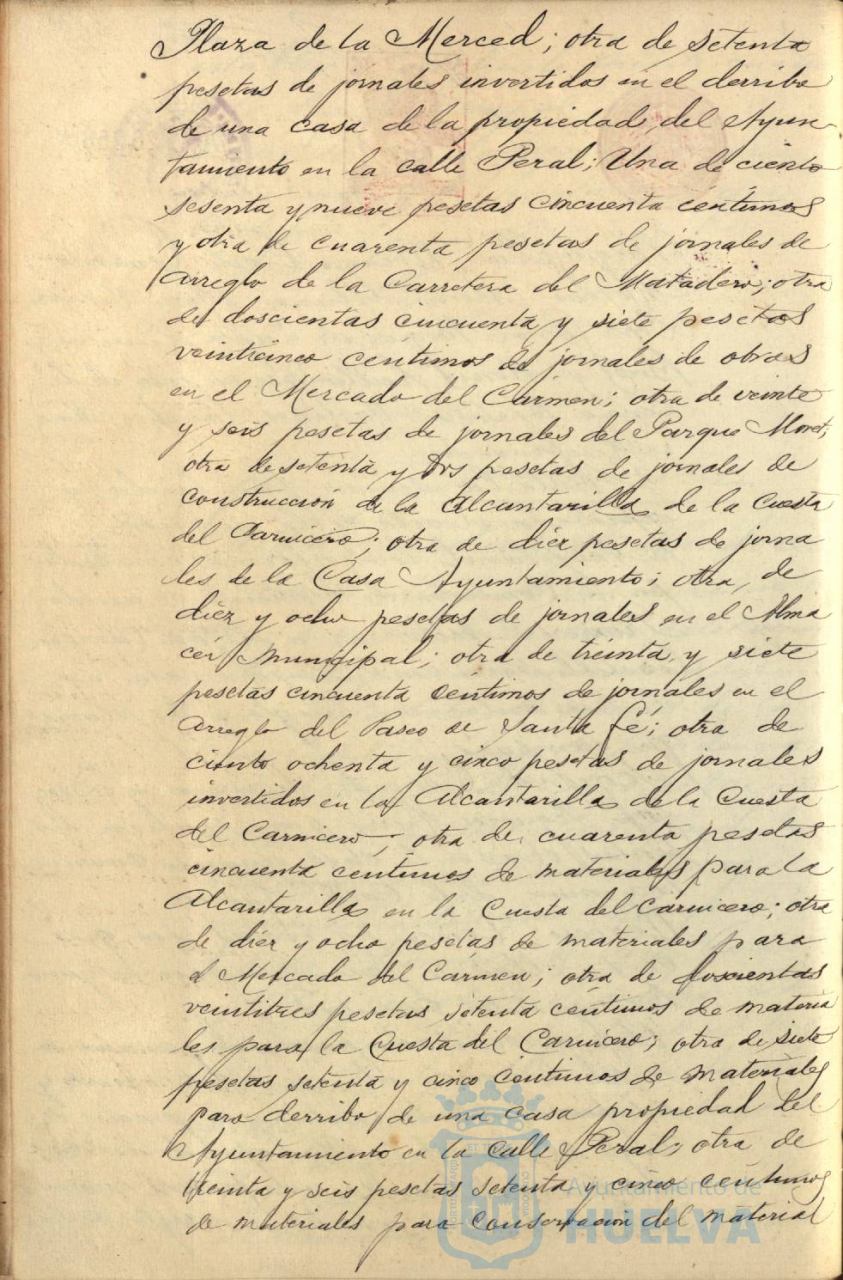 Plaza de la Merced; otra de setenta
pesetas de jornales invertidos en el derribo
de una casa de la propiedad del Ayun-
tamiento en la calle Peral; Una de ciento
sesenta y nueve pesetas cincuenta centimos
y otra de cuarenta pesetas de jornales de
arreglo de la Carretera del Matadero; otra
de doscientas cincuenta y siete pesetas
veinticinco céntimos de jornales de obras
en el Mercado del Cármen; otra de veinte
y seis pesetas de jornales del Parque Moret;
otra de setenta y dos pesetas de jornales de
construcción de la Alcantarilla de la Cuesta
del Carnicero; otra de diez pesetas de jorna
les de la Casa Ayuntamiento; otra, de
diez y ocho pesetas de jornales en el Alma
cén Municipal; otra de treinta y siete
pesetas cincuenta céntimos de jornales en el
arreglo del Paseo de Santa Fé; otra de
ciento ochenta y cinco pesetas de jornales
invertidos en la Alcantarilla de la Cuesta
del Carnicero; otra de cuarenta pesetas
cincuenta céntimos de materiales para la
Alcantarilla en la Cuesta del Carnicero; otra
de diez y ocho pesetas de materiales para
el Mercado del Cármen; otra de doscientas
veintitres pesetas setenta céntimos de materia
les para la Cuesta del Carnicero; otra de siete
pesetas setenta y cinco céntimos de materiales
para derribo de una casa propiedad del
Ayuntamiento en la calle Peral; otra de
treinta y seis pesetas setenta y cinco céntimos
de materiales para conservación del material
Ayuntamiento de
HUELVA